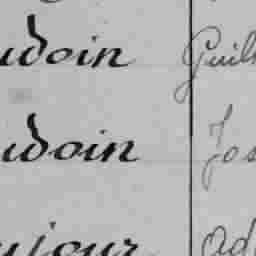 udoin Guil
udoin Jos
ujour Ad